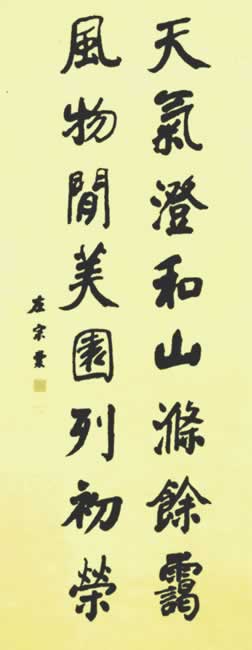 天氣澄和山滌餘靄
風物閒美園列初榮
左宗棠